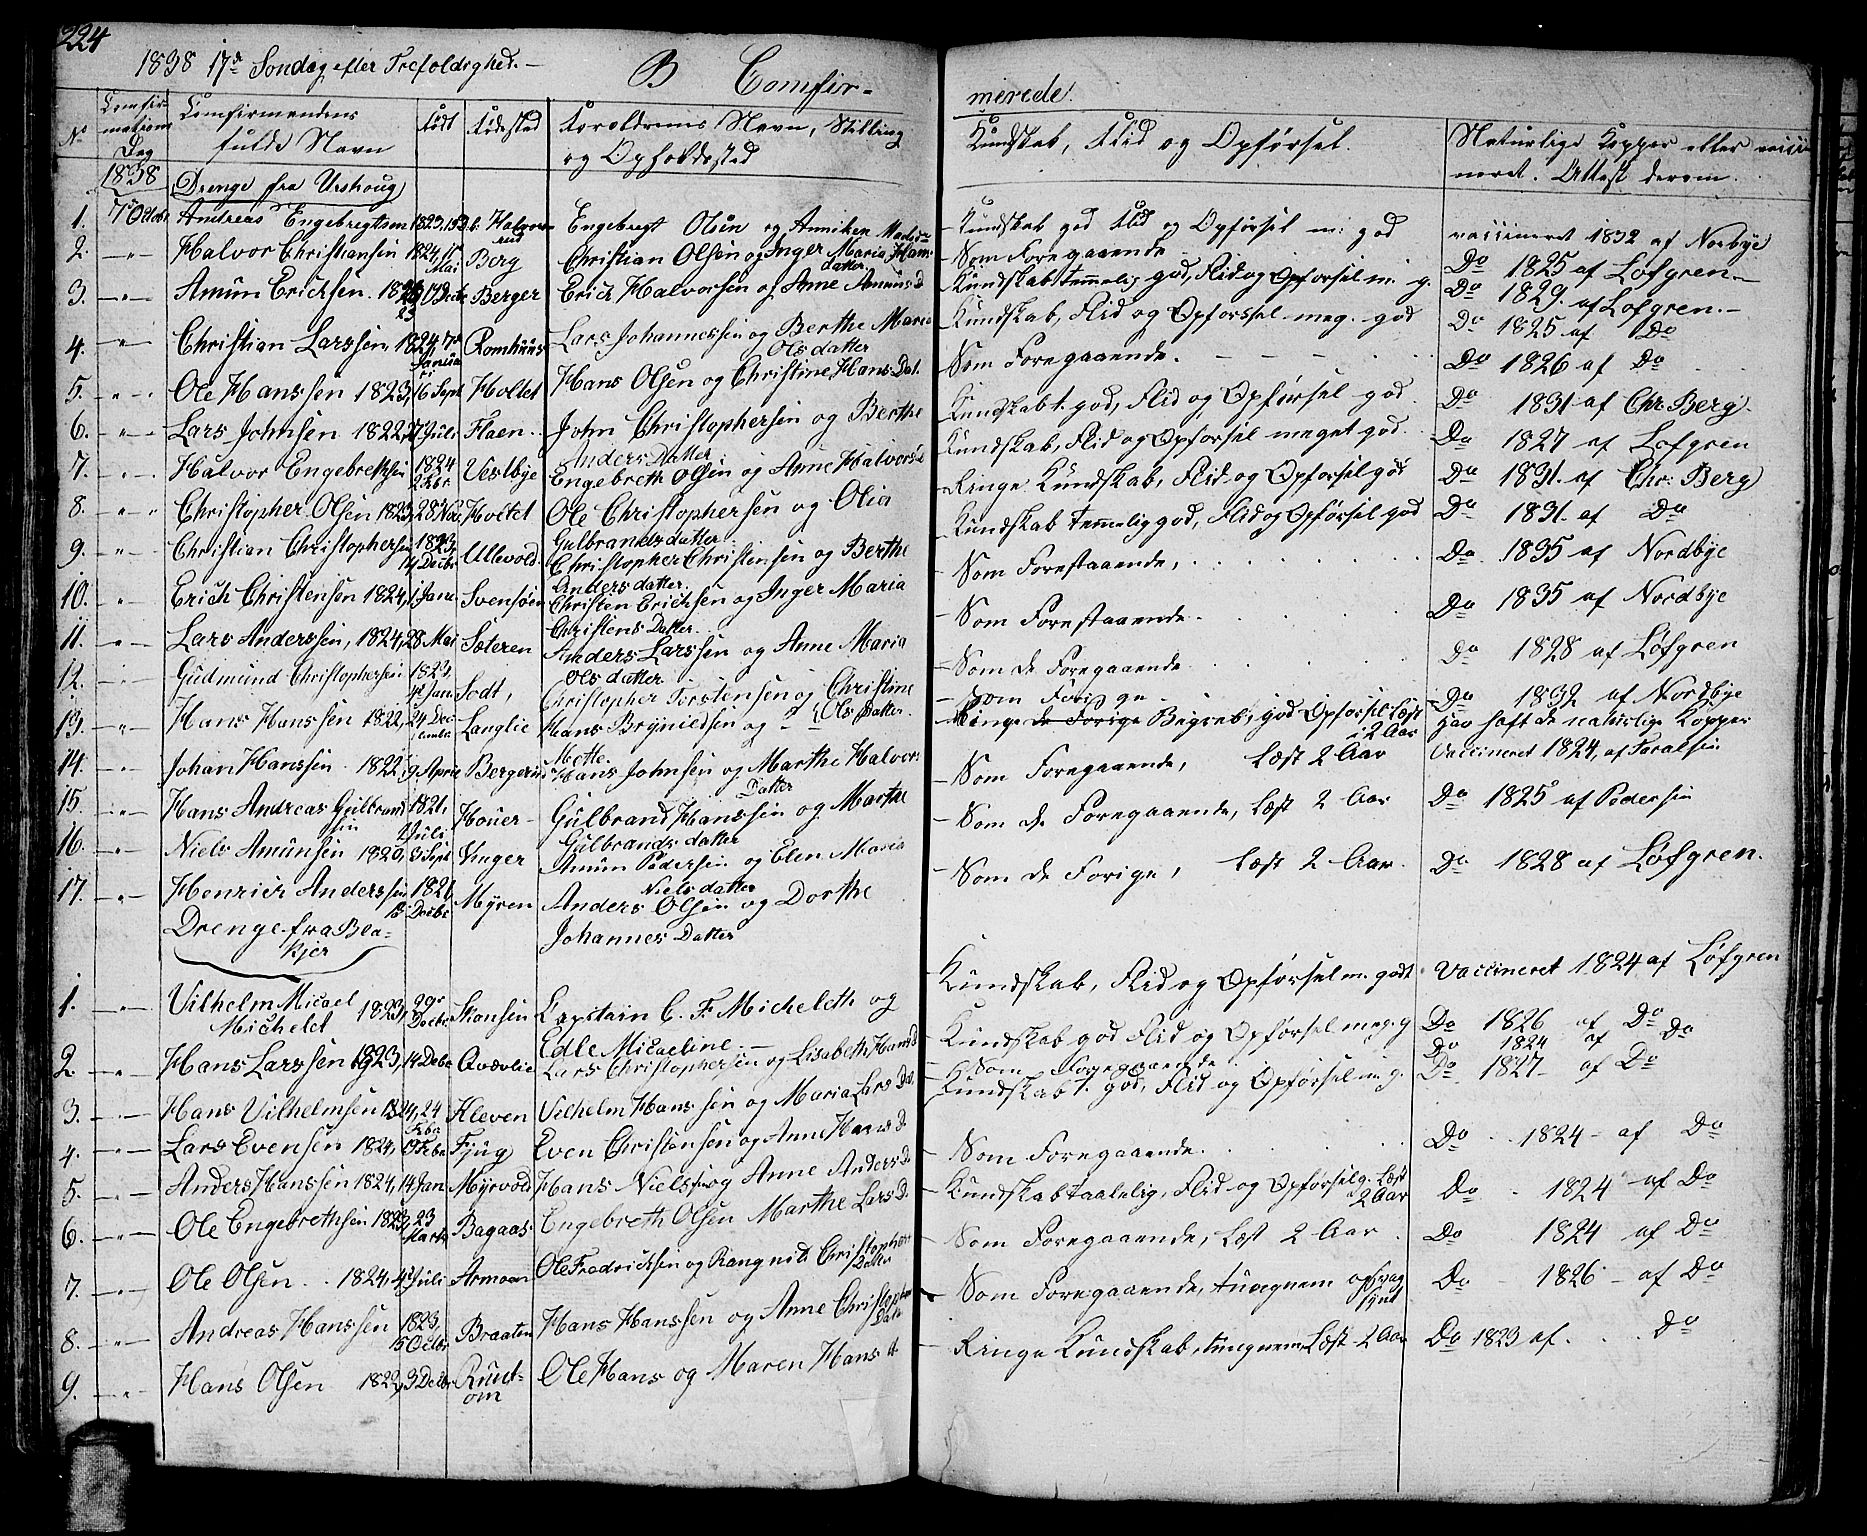 224
1838 17de Søndag efter Trefoldighed. –
B Comfir-
merede.
No
Comfir-
mations
Dag
Comfirmandens
fulde Navn
Født
Fødested
Foreldrenes Navn, Stilling
og Opholdssted
Kundskab, Flid og Opførsel.
Naturlige Kopper eller vacci-
neret. Attest derom.
1838
Drenge fra Urskoug
1. 7de Octobr. Andreas Engebregtsen 1823, Engebregt Olsen og Anniken
Kundskab god Flid og Opførsel m: god vaccineret 1832 af Norbye
2. –"– Halvor Christiansen 1824, Mai Berg Christian Olsen og Inger Maria Hans-
datter
Som Foregaaende Do 1825 af Løfgren –
3. –"– Amun Ericksen. Berger Erick Halvorsen og Anne Amuns D
Kundskab temmelig god, Flid og Opførsel m. g. Do 1829. af Løfgren. –
4. –"– Christian Larssen, 1824, 7de Januari Romhuus Lars Johannessen og Berthe Maria
Ols datter
Kundskab, Flid og Opførssel meg. god Do 1825 af Do
5. –"– Ole Hanssen 1823, 16 Sept Holtet Hans Olsen og Christine Hans Dat.
Som Foregaaende. – – – Do 1826 af Do
6. –"– Lars Johnsen 1822, Juli Flaen. John Christophersen og Berthe
Anders Datter
Kundskab t. god, Flid og Opførsel god. Do 1831 af Chr. Berg.
7. –"– Halvor Engebrethsen 1824 Vestbye Engebreth Olsen og Anne Halvorsd
Kundskab, Flid og Opførsel meget god. Do 1827 af Løfgren
8. –"– Christopher Olsen 1823, 28 Nov. Holtet Ole Christophersen og Olia
Gulbrandsdatter
Ringe Kundskab, Flid og Opførsel god Do 1831. af Chr: Berg
9. –"– Christian Christophersen 1823, 14 Decbr Ullevold. Christopher Christensen og Berthe
Anders datter.
Kundskab temmelig god, Flid og Opførsel god Do 1831. af Do
10. –"– Erich Christensen 1824, 1 Janu Svensøen Christen Ericksen og Inger Maria
Christens Datter.
Som Forestaaende, Do 1835 af Nordbye
11. –"– Lars Anderssen, 1824, 28 Mai Sæteren Anders Larssen og Anne Maria
Ols datter
Som Forestaaende. Do 1835 af Nordbye
12. –"– Gudmund Christophersen 1823, Jan Sodt, Christopher Torstensen og Christine
Ols Datter.
Som de Foregaaende Do 1828 af Løfgren
13. –"– Hans Hanssen 1822, 24 December Langlie Hans Brynildsen og
Mette.
Som Forige Do 1832 af Nordbye
Ringe de Forige Begreb, god Opførsel Læst
i 2 Aar
Har haft de naturlige Kopper
14. –"– Johan Hanssen. 1822, 9 April Bergerud Hans Johnsen og Marthe Halvors
Datter
Som Foregaaende, Læst 2 Aar Vaccineret 1824, af
15. –"– Hans Andreas Gulbrand
sen 1821, Juli Houer – Gulbrand Hanssen og Marthe
Gulbrands datter
Som de Foregaaende, Læst 2 Aar Do 1825 af Pedersen
16. –"– Niels Amunsen 1820, Sept Unger Amun Pedersen og Elen Maria
Niels datter
Som de Forige, Læst 2 Aar. Do 1828 af Løfgren.
17. –"– Henrich Anderssen 1821, 18 Decbr Myren Anders Olsen og Dorthe
Johannes Datter
Drenge fra Bla-
kjer
1. –"– Vilhelm Micael
Michelet 1823, 29de Decbr Skansen Capitain C. F. Micheleth og
Edle Micaeline. –
Kundskab, Flid og Opførsel m. godt Vaccineret 1824 af Løfgren
2. –"– Hans Larssen 1823, 14 Decbr Qvævlie Lars Christophersen og Lisabeth Hans D
Kundskab god Flid og Opførsel meg. g Do 1826 af Do
Do 1824 af Do
3. –"– Hans Vilhelmsen 1824, 24 Febr Kleven Vilhelm Hanssen og Maria Lars Dat.
Som Foregaaende.
Kundskab t. god, Flid og Opførsel m. g. Do 1827 – af Do
4. –"– Lars Evensen 1824, Febr Fjug Even Christensen og Anne Hans D
Som Foregaaende. Do 1824 – af Do
5. –"– Anders Hanssen 1824, 14 Jan Myrvold Hans Nielssen og Anne Anders D
Kundskab taalelig, Flid og Opførsel g. Læst
2 Aar
Do 1824 – af Do
6. –"– Ole Engebrethsen 1823, 23 Marts Bagaas Engebreth Olsen Marthe Lars D.
Som Foregaaende, Læst 2 Aar. Do 1824 af Do
7. –"– Ole Olsen. 1824, 4de Juli Armoen Ole Fredricksen og Rangnild Christopher
Datter
Som Foregaaende, tungnem og svag
synt Do 1826 – af Do
8. –"– Andreas Hanssen 1823, 15 Octbr Braaten Hans Hanssen og Anne Christopher
Datt
Ringe Kundskab, tungnem, Læst 2 Aar Do 1823 af. Do
9. –"– Hans Olsen 1822, 3 Decbr Ruud-
om Ole Hans og Maren Hans d